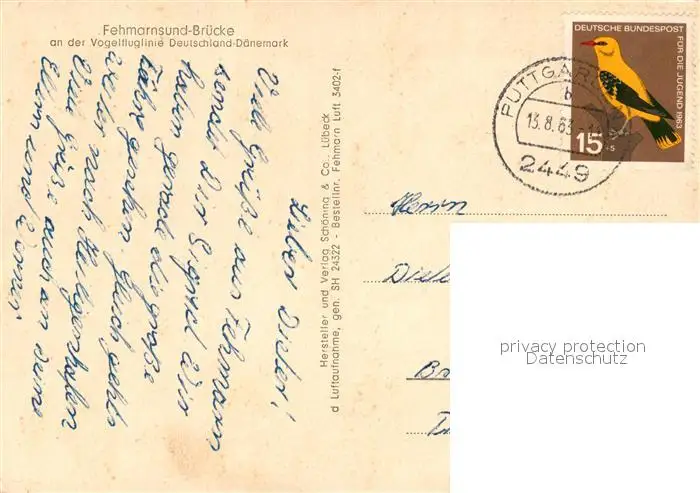 Fehmarnsund-Brücke
an der Vogelfluglinie Deutschland-Dänemark
Lieber Dieter!
Viele Grüße aus Fehmarn
sendet Dir Sigrid. Wir
haben gerade die große
Fähre gesehen. Gleich geht's
weiter nach Heiligenhafen
Viele Grüße auch an Deine
Eltern und Deinen
Hersteller und Verlag Schöning & Co., Lübeck
d Luftaufnahme, gen. SH 24322 - Bestellnr. Fehmarn Luft 3402-f
DEUTSCHE BUNDESPOST
FÜR DIE JUGEND 1963
15
+5
PUTTGARDEN
b
13.8.63
2449
Herrn
privacy protection
Datenschutz